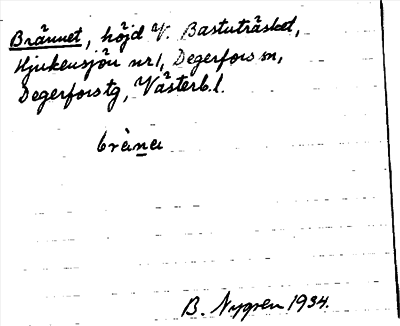 Brännet, höjd V. Bastuträsket,
Hjukensjön nr 1, Degerfors sn,
Degerfors tg, Västerb. l.
bràna
B. Nygren 1934.